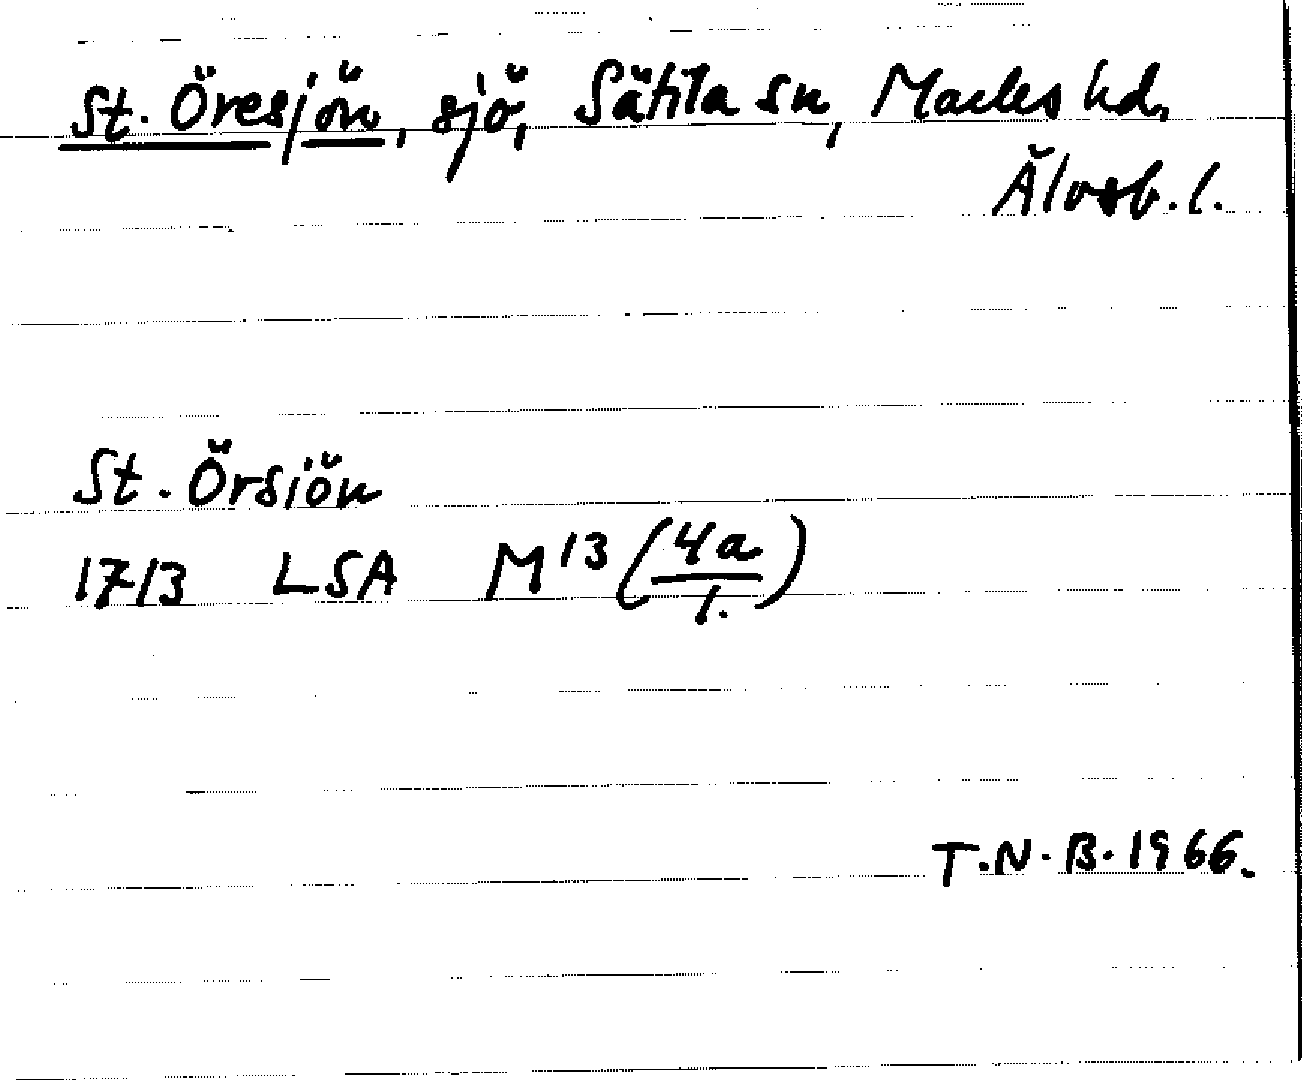 St. Öresjön, sjö, Sätila sn, Marks hd,
Älvsb. l.
St. Örsiön
1713 LSA M¹³ (4a/1.)
T.N.B. 1966.